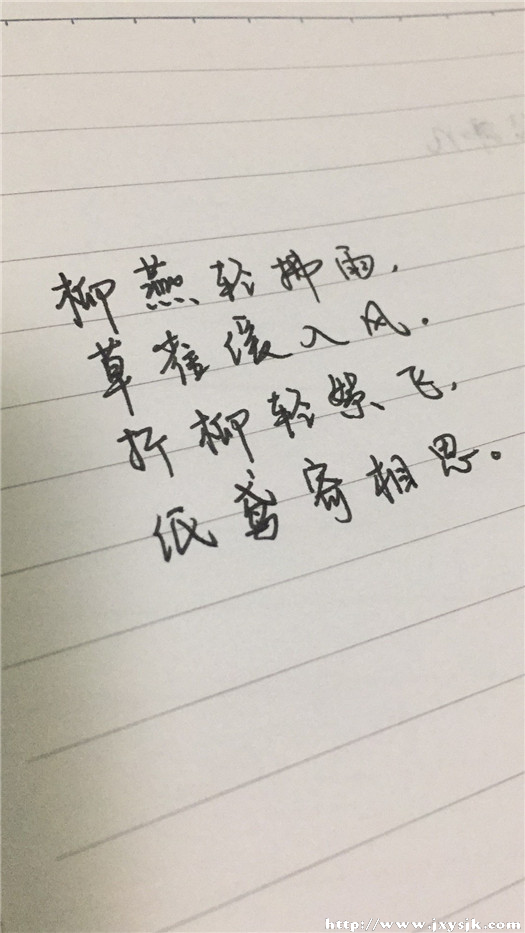 柳燕轻拂雨，
草雀缓入风.
折柳轻絮飞，
纸鸢寄相思。
http://www.jxysjk.com